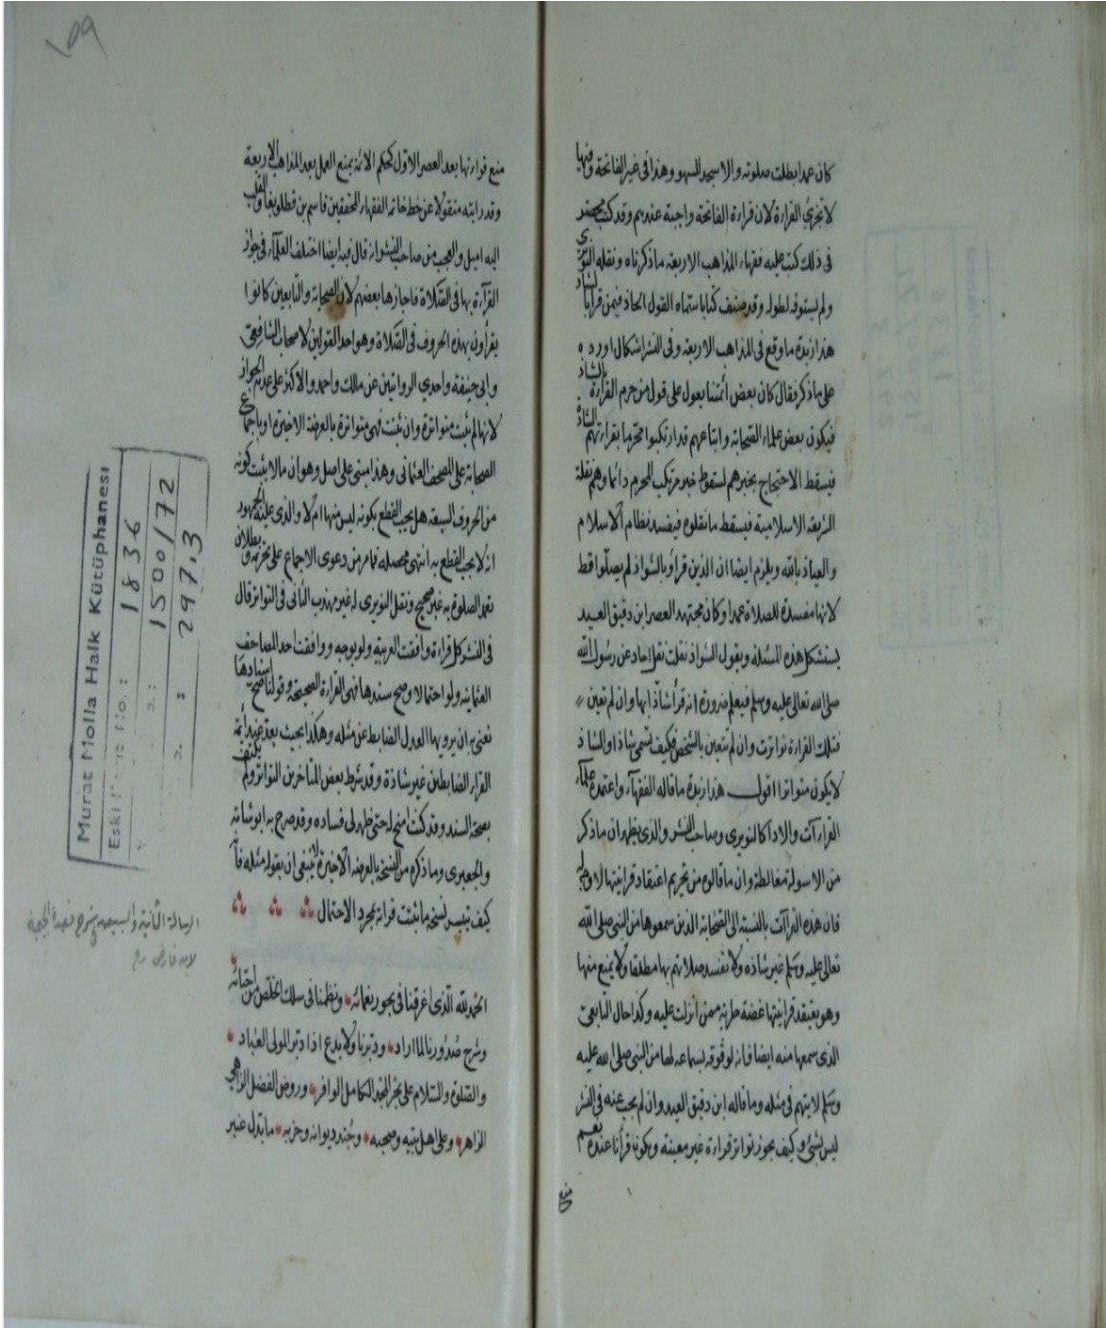 كان عمدا بطلت صلوته والا سجد للسهو وهذا فى غير الفاتحة وفيها
لا تجزئ القراءة لان قراءة الفاتحة واجبة عندهم وقد كتب محضر
فى ذلك كتب عليه فقهاء المذاهب الاربعة ما ذكرناه ونقله النويرى
ولم يستوفه لطوله وقد صنف كتابا سماه القول الجاذ فيمن قرأ بالشاذ
هذا زبدة ما وقع فى المذاهب الاربعة وفى النشر اشكال اورده
على ما ذكر فقال كان بعض أئمتنا يعول على قول من حرم القراءة بالشاذ
فيكون بعض علماء الصحابة واتباعهم قد ارتكبوا محرّما بقراءتهم الشاذ
فيسقط الاحتجاج بخبرهم لسقوط خبر مرتكب المحرم دائما وهم نقلة
الشريعة الاسلامية فيسقط ما نقلوه فيفسد نظام الاسلام
والعياذ بالله ويلزم ايضا ان الذين قرأو بالشواذ لم يصلّوا قط
لانها مفسدة للصلاة عمدا وكان مجتهد العصر ابن دقيق العيد
يستشكل هذه المسئلة ويقول الشواذ نقلت نقل احاد عن رسول الله
صلى الله تعالى عليه وسلم فيعلم ضرورة انه قرأ شاذّا بها وان لم تعين
فتلك القراءة تواترت وان لم تتعين بالشخص فكيف تسمى شاذا والشاذ
لا يكون متواترا اقول هذا زبدة ما قاله الفقهآء واعتمده علمآء
القراآت والادآ كالنويرى وصاحب النشر والذى يظهر ان ما ذكر
من الاسولة مغالطة وان ما قالوه من تحريم اعتقاد قرانيتها لا وجه له
فان هذه القراآت بالنسبة الى الصحابة الذين سمعوها من النبى صلى الله
تعالى عليه وسلم غير شاذه ولا تفسد صلاتهم بها مطلقا ولا يمنع منها
وهو يعتقد قرانيتها غضة طرية ممن أنزلت عليه وكذا حال التابعى
الذى سمعها منه ايضا فانه لوثوقه بسماعه لها من النبى صلى الله عليه
وسلم لا يتهم فى مثله وما قاله ابن دقيق العيد وان لم يجب عنه فى النشر
ليس بشئ وكيف يجوز تواتر قراءة غير معينة وبكونا قرأنا عنده نعم
منع
١٥٩
منع قراءتها بعد العصر الاول كحكم الائمة بمنع العمل بعد المذاهب الاربعة
وقد رايته منقولا عن خط خاتمة الفقهاء المحققين قاسم بن قطلوبغا والقلب
اليه اميل والعجب من صاحب النشر انه قال فيه ايضا اختلف العلمآء فى جواز
القرآءة بها فى الصّلاة فاجازها بعضهم لان الصحابة والتابعين كانوا
يقرأون بهذه الحروف فى الصّلاة وهو احد القولين لاصحاب الشافعى
وابى حنيفة واحدى الروايتين عن مالك واحمد والاكثر على عدم الجواز
لانها لم تثبت متواترة وان ثبتت فهى متواترة بالعرضة الاخيرة او باجماع
الصحابة على المصحف العثمانى وهذا مبنى على اصل وهو ان ما لا يثبت كونه
من الحروف السبعة هل يجب القطع بكونه ليس منها ام لا والذى عليه الجمهور
انه لا يجب القطع به انتهى محصله فما مر من دعوى الاجماع على تحريمه وبطلان
تعمد الصلوة به غير صحيح ونقل النويرى له غير مهذب الثانى فى التواتر قال
فى النشر كل قراءة وافقت العربية ولو بوجه ووافقت احد المصاحف
العثمانية ولو احتمالا وصح سندها فهى القراءة الصحيحة وقولنا صح اسنادها
نعنى به ان يرويها العدل الضابط عن مثله وهكذا بحيث يعد عند ائمة
القراء الضابطين غير شاذة وقد شرط بعض المتأخرين التواتر ولم يكتف
بصحة السند وقد كنت امنح له حتى ظهر لى فساده وقد صرح به ابو شامة
والجعبرى وما ذكره من النسخ بالعرضة الاخيرة لا ينبغى ان يقوله مثله فانه
كيف يتيسر نسخ ما ثبتت قراءة بمجرد الاحتمال
الحمد لله الّذى اغرقنا فى بحور نعمائه ونظمنا فى سلك الخلّص من احبّائه
وشرح صُدُورنا لما اراد ودبّرنا ولا بدع اذا دبّر المولى العباد
والصّلوة والسّلام على بحر المجد الكامل الوافر وروض الفضل الزاهى
الزاهر وعلى اهل بيته وصحبه وجند ديوانه وحزبه ما تدلى عنبر
Murat Molla Halk Kütüphanesi
Eski No. : 1836
1500/72
297.3
الرسالة الثانية والسبعون شرح قصيدة
لابن فارض رح